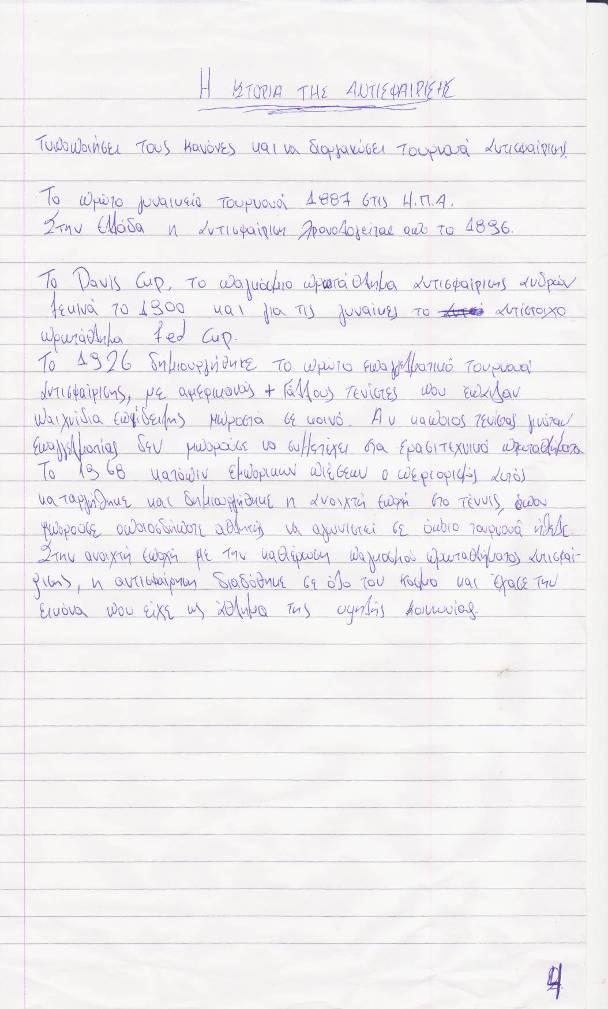 Η ΙΣΤΟΡΙΑ ΤΗΣ ΑΝΤΙΣΦΑΙΡΙΣΗΣ
Τυποποιήσει τους κανόνες και να διοργανώσει τουρνουά Αντισφαίρισης.
Το πρώτο γυναικείο τουρνουά 1887 στις Η.Π.Α.
Στην Ελλάδα η Αντισφαίριση χρονολογείται από το 1896.
Το Davis Cup, το παγκόσμιο πρωτάθλημα Αντισφαίρισης Ανδρών
ξεκινά το 1900 και για τις γυναίκες το Αντίστοιχο
πρωτάθλημα Fed Cup.
Το 1926 δημιουργήθηκε το πρώτο επαγγελματικό τουρνουά
Αντισφαίρισης, με αμερικανούς + Γάλλους τενίστες που έπαιζαν
παιχνίδια επίδειξης μπροστά σε κοινό. Αν κάποιος τενίστας γινόταν
Επαγγελματίας δεν μπορούσε να συμμετέχει στα ερασιτεχνικά πρωταθλήματα
Το 1968 κατόπιν εμπορικών πιέσεων ο περιορισμός Αυτός
καταργήθηκε και δημιουργήθηκε η Ανοιχτή εποχή στο τέννις, όπου
μπορούσε οποιοσδήποτε αθλητής να αγωνιστεί σε όποιο τουρνουά ήθελε.
Στην ανοιχτή εποχή με την καθιέρωση παγκοσμίου πρωταθλήματος Αντισφαί-
ρισης, η αντισφαίριση διαδόθηκε σε όλο τον κόσμο και έχασε την
εικόνα που είχε ως Άθλημα της υψηλής κοινωνίας.